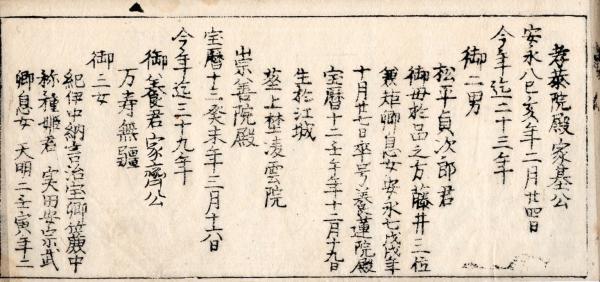 孝恭院殿家基公
安永八己亥年二月廿四日
今年迄二十三年
御二男
松平貞次郎君
御母於品之方藤井三位
兼矩卿息女安永七戊戌年
十月廿七日卒号養蓮院殿
宝暦十二壬午年十二月十九日
生於江城
葬上埜凌雲院
崇善院殿
宝暦十三癸未年三月十六日
今年迄三十九年
御養君家齊公
万寿無疆
御三女
紀伊中納言治宝卿簾中
称種姫君 実田安宗武
卿息女 天明二壬寅年二